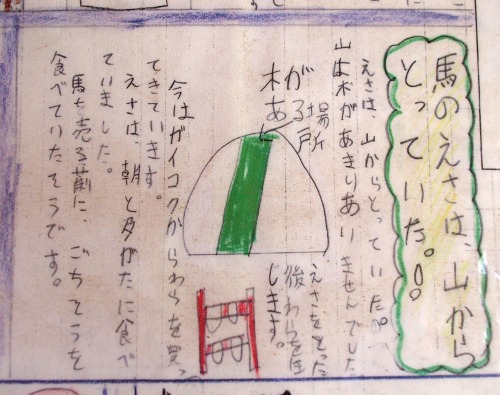 馬のえさは、山から
とっていた。!!
えさは、山からとっていたが、
山は木があまりありませんでした
木が
ある
場所
えさをとった
後わらを
しきます。
今はガイコクからわらを買っ
てきていきます。
えさは、朝と夕がたに食べ
ていました。
馬を売る前に、ごちそうを
食べていたそうです。